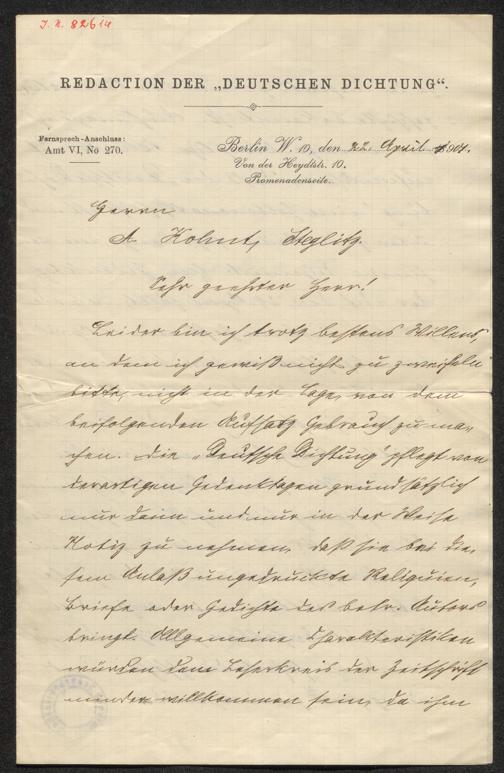 J. N. 82614
REDACTION DER „DEUTSCHEN DICHTUNG“.
Fernsprech-Anschluss:
Amt VI, No 270.
Berlin W. 10, den 22. April 1901.
Von der Heydtstr. 10.
Promenadenseite.
Herrn
A Kohut, Steglitz.
Sehr geehrter Herr!
Leider bin ich trotz bestens Willens,
an dem ich gewiß nicht zu zweifeln
bitte, nicht in der Lage, von dem
beifolgenden Aufsatz Gebrauch zu ma-
chen. Die „Deutsche Dichtung“ pflegt von
derartigen Gedenktagen grundsätzlich
nur dann und nur in der Weise
Notiz zu nehmen, daß sie bei die-
sem Anlaß ungedruckte Reliquien,
Briefe oder Gedichte des betr. Autors
bringt. Allgemeine Charakteristiken
würden dem Leserkreis der Zeitschrift
minder willkommen sein, da ihm